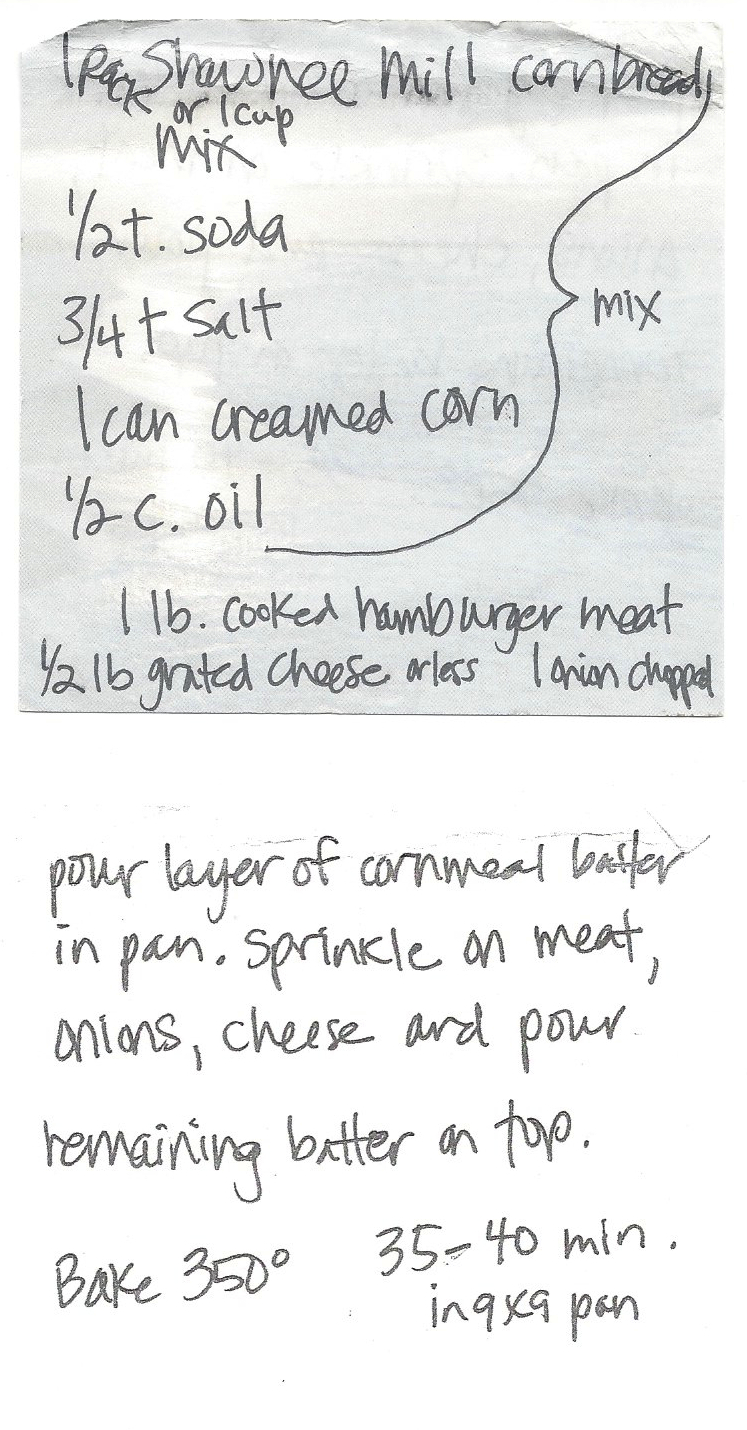 1 pack Shawnee Mill cornbread
or 1 cup
mix
1/2 t. soda
3/4 t salt
1 can creamed corn
1/2 c. oil
mix
1 lb. cooked hamburger meat
1/2 lb grated cheese or less 1 onion chopped
pour layer of cornmeal batter
in pan. Sprinkle on meat,
onions, cheese and pour
remaining batter on top.
Bake 350° 35-40 min.
in 9x9 pan